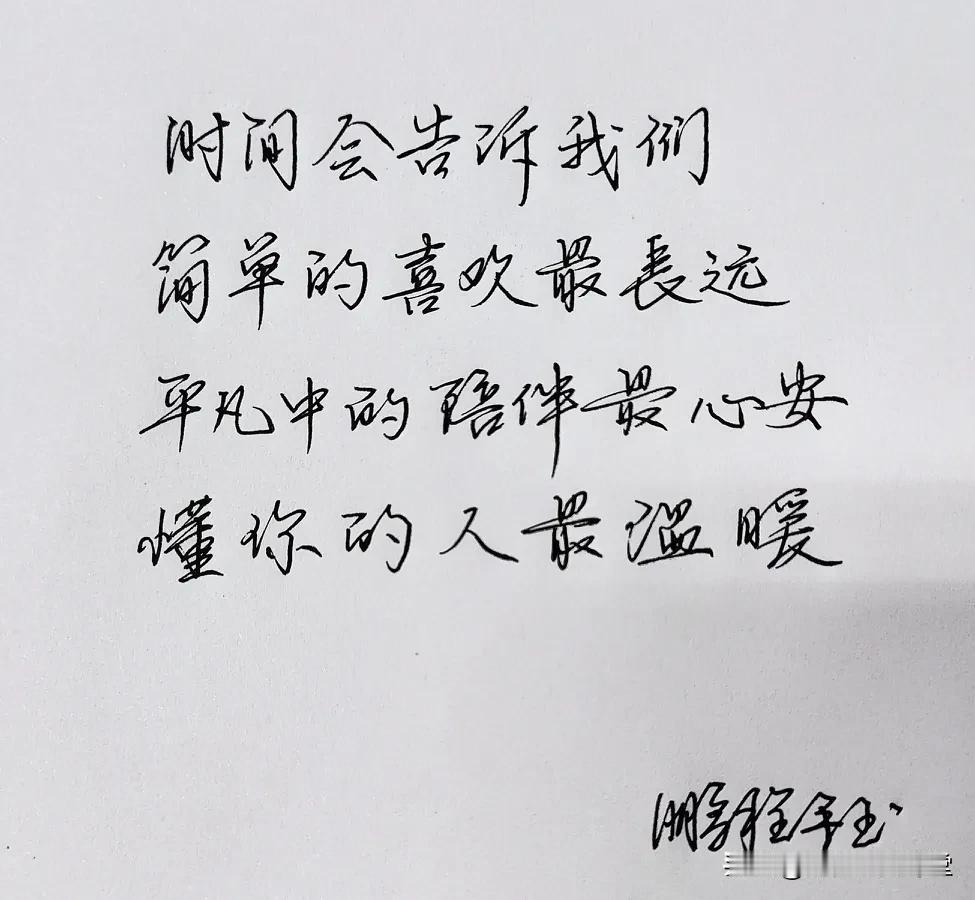 时间会告诉我们
简单的喜欢最長远
平凡中的陪伴最心安
懂你的人最温暖
鹏程